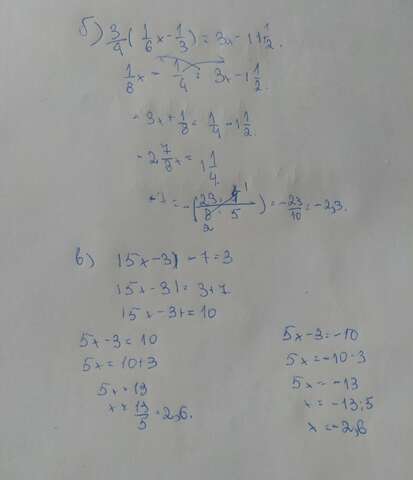 б) 3/4 (1/6 x - 1/3) = 3x - 1 1/2.
1/8 x - 1/4 = 3x - 1 1/2.
- 3x + 1/8 = 1/4 - 1 1/2.
- 2 7/8 x = 1 1/4.
= - (23 · 4 1 / 8 · 5 2) = - 23/10 = - 2,3.
в) |5x - 3| - 7 = 3
|5x - 3| = 3 + 7
|5x - 3| = 10
5x - 3 = 10
5x = 10 + 3
5x = 13
x = 13/5 = 2,6.
5x - 3 = -10
5x = -10 · 3
5x = -13
x = -13 : 5
x = -2,6